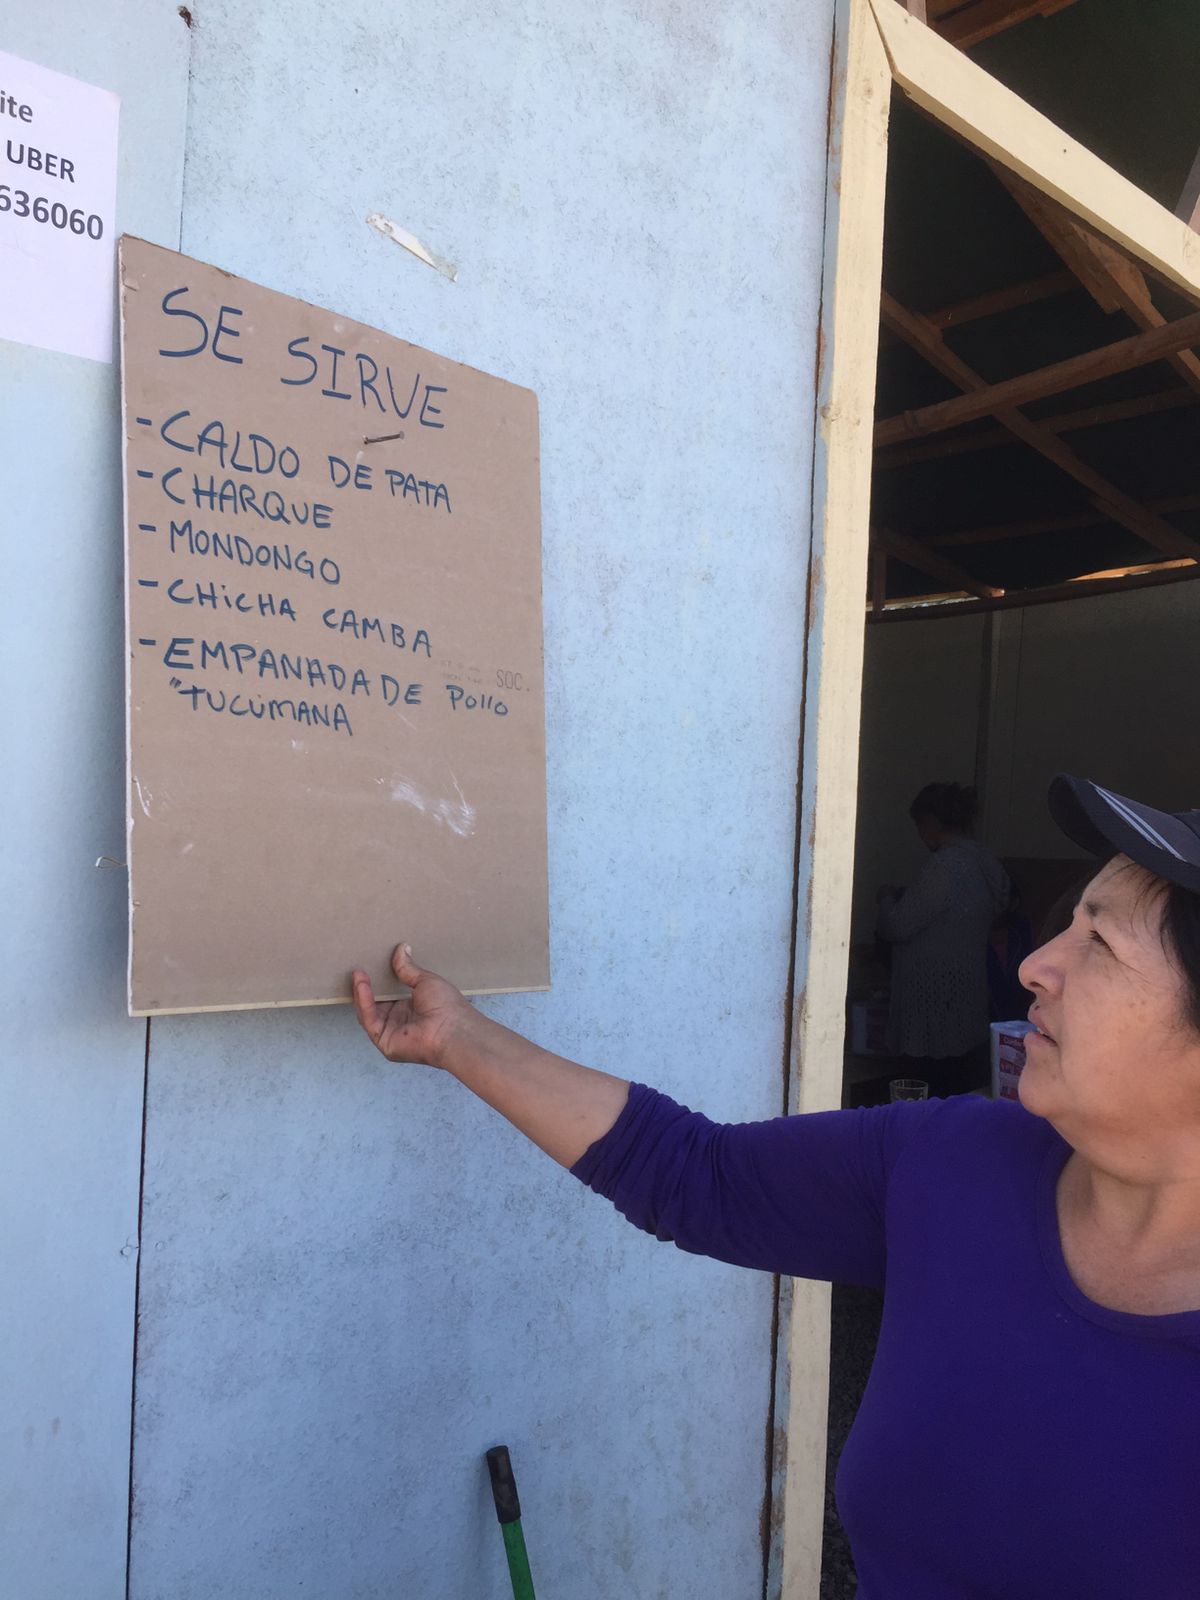 ite
UBER
636060
SE SIRVE
- CALDO DE PATA
- CHARQUE
- MONDONGO
- CHiCHA CAMBA
- EMPANADA DE Pollo
"TUCUMANA
SOC.